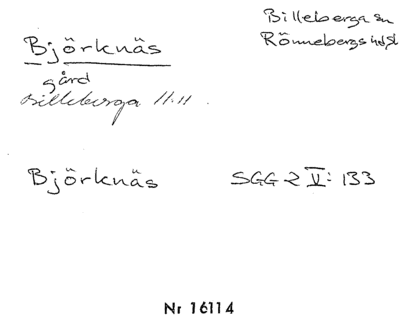 Billeberga sn
Rönnebergs hd, Sk
Björknäs
gård
Billeberga 11:11.
Björknäs SGG 2 V: 133
Nr 16114